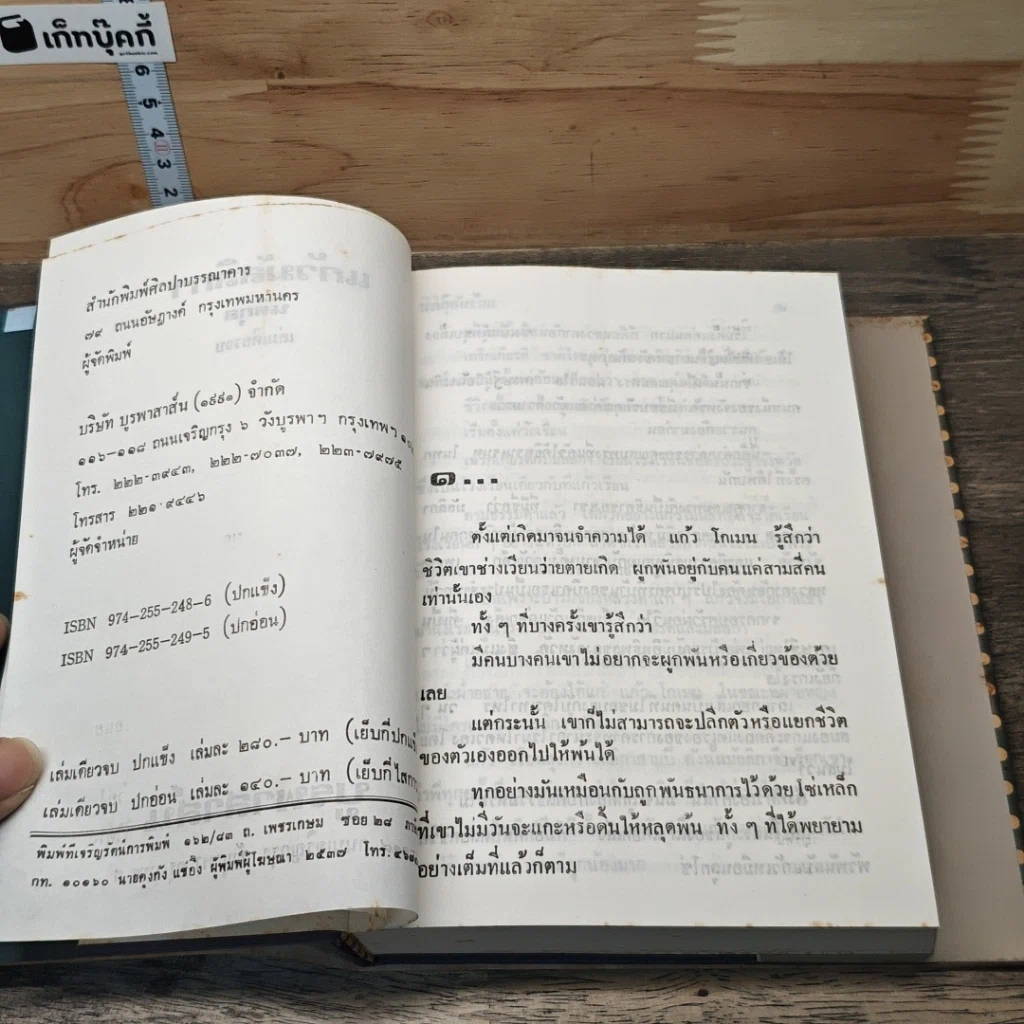 เก็ทบุ๊คกี้
6
5
4
3
2
สำนักพิมพ์ศิลปาบรรณาคาร
๗๙ ถนนอัษฎางค์ กรุงเทพมหานคร
ผู้จัดพิมพ์
บริษัท บูรพาสาส์น (๑๙๙๑) จำกัด
๑๑๖-๑๑๘ ถนนเจริญกรุง ๖ วังบูรพาฯ กรุงเทพฯ
โทร. ๒๒๒-๓๙๔๓, ๒๒๒-๗๐๓๗, ๒๒๓-๗๙๗๕
โทรสาร ๒๒๑-๙๔๔๖
ผู้จัดจำหน่าย
ISBN 974-255-248-6 (ปกแข็ง)
ISBN 974-255-249-5 (ปกอ่อน)
เล่มเดียวจบ ปกแข็ง เล่มละ ๒๘๐.- บาท (เย็บกี่ปกแข็
เล่มเดียวจบ ปกอ่อน เล่มละ ๑๔๐.- บาท (เย็บกี่ไสกา
พิมพ์ที่เจริญรัตน์การพิมพ์ ๑๖๒/๘๓ ถ. เพชรเกษม ซอย ๒๘
กท. ๑๐๑๖๐ นายคุงกัง แซ่อึ้ง ผู้พิมพ์ผู้โฆษณา ๒๕๓๗ โทร.
๑...
ตั้งแต่เกิดมาจนจำความได้ แก้ว โกเมน รู้สึกว่า
ชีวิตเขาช่างเวียนว่ายตายเกิด ผูกพันอยู่กับคนแค่สามสี่คน
เท่านั้นเอง
ทั้ง ๆ ที่บางครั้งเขารู้สึกว่า
มีคนบางคนเขาไม่อยากจะผูกพันหรือเกี่ยวข้องด้วย
เลย
แต่กระนั้น เขาก็ไม่สามารถจะปลีกตัวหรือแยกชีวิต
ของตัวเองออกไปให้พ้นได้
ทุกอย่างมันเหมือนกับถูกพันธนาการไว้ด้วยโซ่เหล็ก
ที่เขาไม่มีวันจะแกะหรือดิ้นให้หลุดพ้น ทั้ง ๆ ที่ได้พยายาม
อย่างเต็มที่แล้วก็ตาม